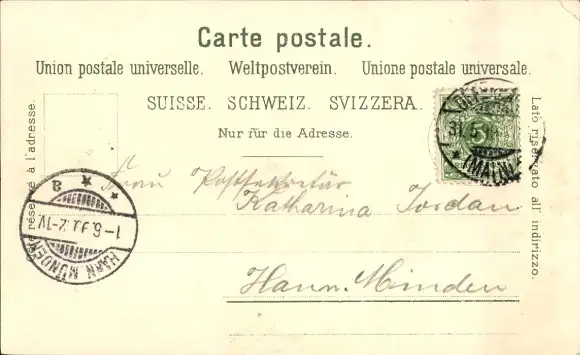 Carte postale.
Union postale universelle. Weltpostverein. Unione postale universale.
SUISSE. SCHWEIZ. SVIZZERA.
Nur für die Adresse.
réservé à l'adresse.
Lato riservato all' indirizzo.
31.5
(MAIN)
Frau Postsekretär
Katharina Jordan
Hann. Minden
HANN. MÜNDEN